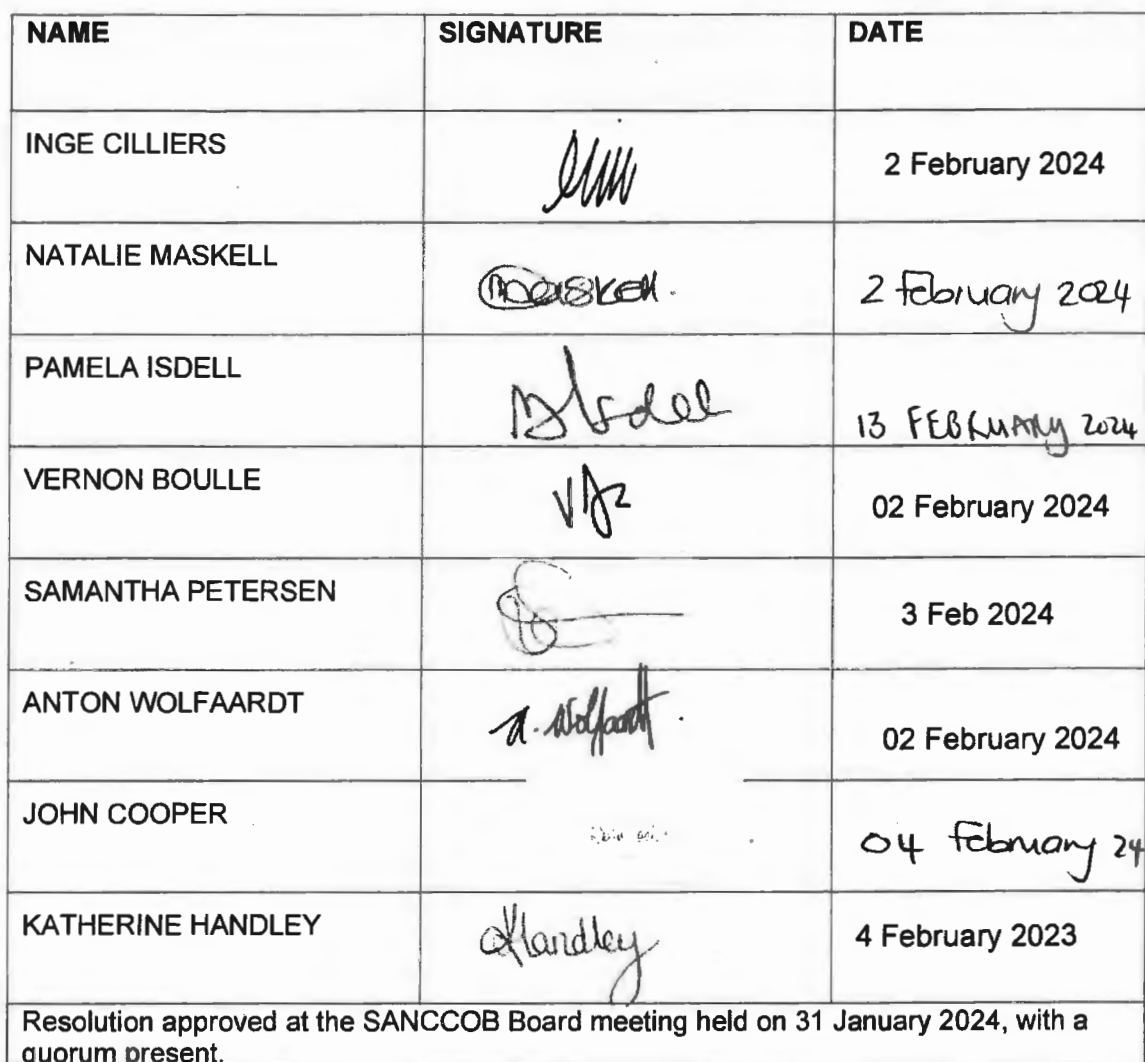 NAME SIGNATURE DATE
INGE CILLIERS 2 February 2024
NATALIE MASKELL Maskell. 2 February 2024
PAMELA ISDELL Isdell 13 FEBRUARY 2024
VERNON BOULLE 02 February 2024
SAMANTHA PETERSEN 3 Feb 2024
ANTON WOLFAARDT A. Wolfaardt. 02 February 2024
JOHN COOPER 04 February 24
KATHERINE HANDLEY KHandley 4 February 2023
Resolution approved at the SANCCOB Board meeting held on 31 January 2024, with a
quorum present.